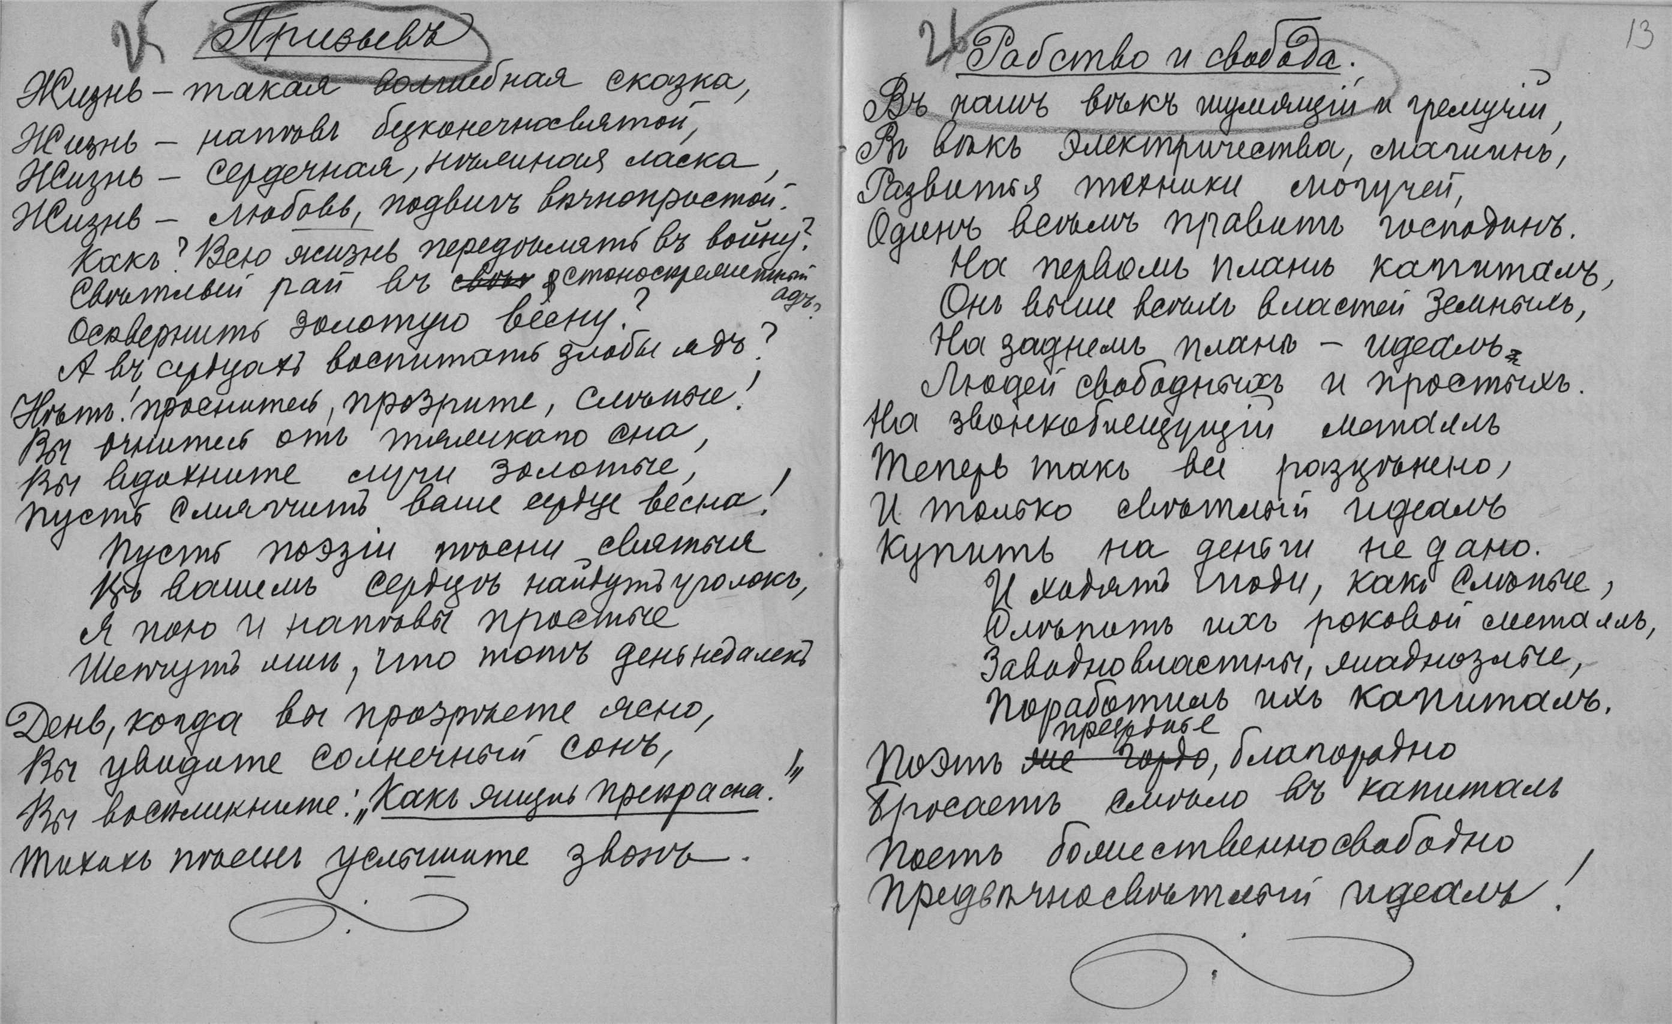 25
Призывъ
Жизнь – такая волшебная сказка,
Жизнь – напѣвъ безконечносвятой,
Жизнь – сердечная, нѣжная ласка,
Жизнь – любовь, подвигъ вѣчнопростой.
Какъ? Всю жизнь передѣлать въ войну?
Свѣтлый рай въ стоноскрежетный
адъ,
Осквернить золотую весну?
А въ сердцахъ воспитать злобы ядъ?
Нѣтъ! проснитесь, прозрите, слѣпые!
Вы очнитесь отъ тяжкаго сна,
Вы вдохните лучи золотые,
Пусть смягчитъ ваше сердце весна!
Пусть поэзіи пѣсни святыя
Въ вашемъ сердцѣ найдутъ уголокъ,
Я пою и напѣвы простые
Шепчутъ мнѣ, что тотъ день недалекъ
День, когда вы прозрѣете ясно,
Вы увидите солнечный сонъ,
Вы воскликните: „Какъ жизнь прекрасна!"
Тихихъ пѣсенъ услышите звонъ.
13
26
Рабство и свобода.
Въ нашъ вѣкъ шумящій и гремучій,
Въ вѣкъ электричества, машинъ,
Развитья техники могучей,
Одинъ всѣмъ правитъ господинъ.
На первомъ планѣ капиталъ,
Онъ выше всѣхъ властей земныхъ,
На заднемъ планѣ – идеалъ
Людей свободныхъ и простыхъ.
На звонкоблещущій металлъ
Теперь такъ все разцѣнено,
И только свѣтлый идеалъ
Купить на деньги не дано.
И ходятъ люди, какъ слѣпые,
Слѣпитъ ихъ роковой металлъ,
Заводновластны, жаднозлые,
Поработилъ ихъ капиталъ.
презрѣнье
Поэтъ же гордо, благородно
Бросаетъ смѣло въ капиталъ
Поетъ божественносвободно
Предвѣчносвѣтлый идеалъ!